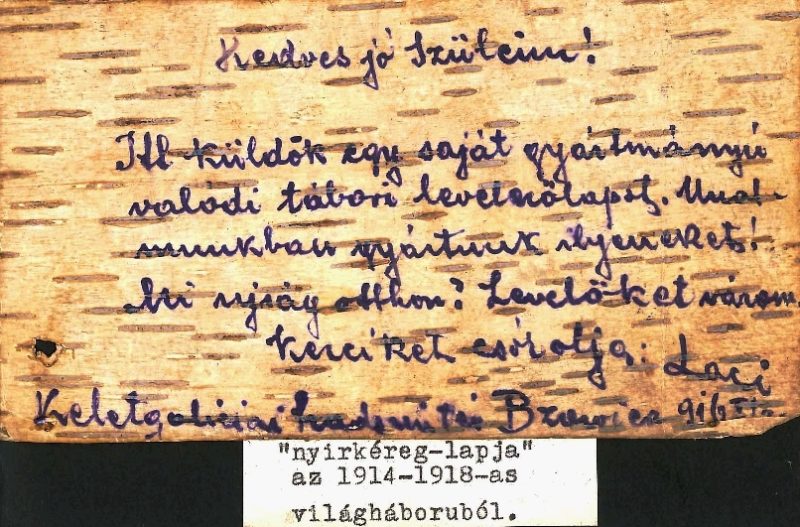 Kedves jó Szüleim!
Itt küldök egy saját gyártmányú
valódi tábori levelezőlapot. Unal-
munkban gyártunk ilyeneket!
Mi ujság otthon? Levelöket várom
Kezeiket csókolja: Laci
Keletgaliciai 916
"nyirkéreg-lapja"
az 1914-1918-as
világháboruból.